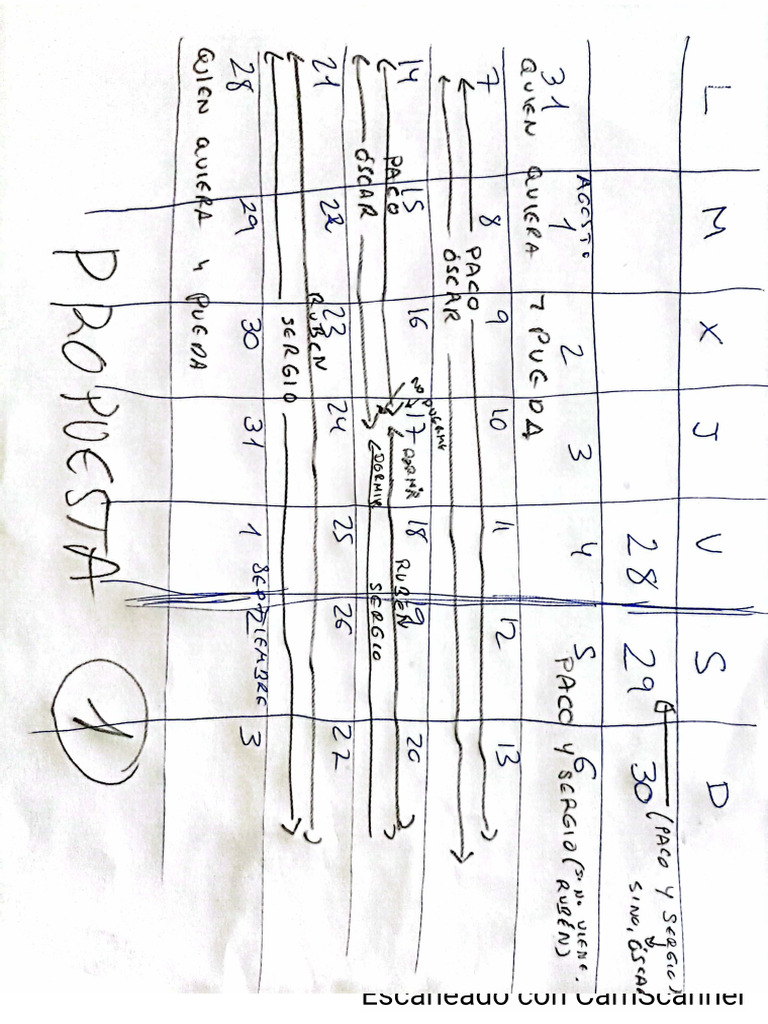 L M X J V S D
28 29 30 (PACO Y SERGIO)
SINO, ÓSCAR
AGOSTO
31 1 2 3 4 5 6
QUIEN QUIERA Y PUEDA
PACO Y SERGIO (SI NO VIENE.
RUBÉN)
7 8 9 10 11 12 13
PACO
ÓSCAR
NO DUERME
14 15 16 17 18 19 20
DORMIR
PACO RUBÉN
ÓSCAR (DORMIR SERGIO
21 22 23 24 25 26 27
RUBÉN
SERGIO
28 29 30 31 1 SEPTIEMBRE 2 3
QIEN QUIERA Y PUEDA
PROPUESTA 1
Escaneado con CamScanner